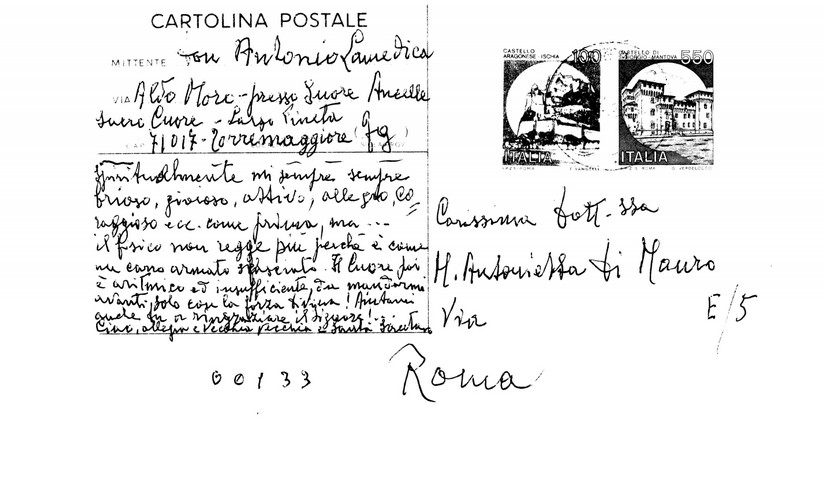 CARTOLINA POSTALE
MITTENTE Don Antonio Lamedica
VIA Aldo Moro - presso Suore Ancelle
Sacro Cuore - Largo Pineta
71017 - Torremaggiore (Fg)
Spiritualmente mi sempre sempre
brioso, gioioso, attivo, allegro, co=
raggioso ecc. come prima, ma ...
il fisico non regge più perché è come
un carro armato sfasciato. Il Cuore poi
è aritmico ed insufficiente, da mandarmi
avanti solo con la forza divina! Aiutami
anche tu a ringraziare il Signore!
Ciao, allegra e vecchia
CASTELLO
ARAGONESE - ISCHIA
100
ITALIA
CASTELLO DI
MANTOVA
550
ITALIA
Carissima Dott-ssa
M. Antonietta Di Mauro
Via
E/5
00133
Roma